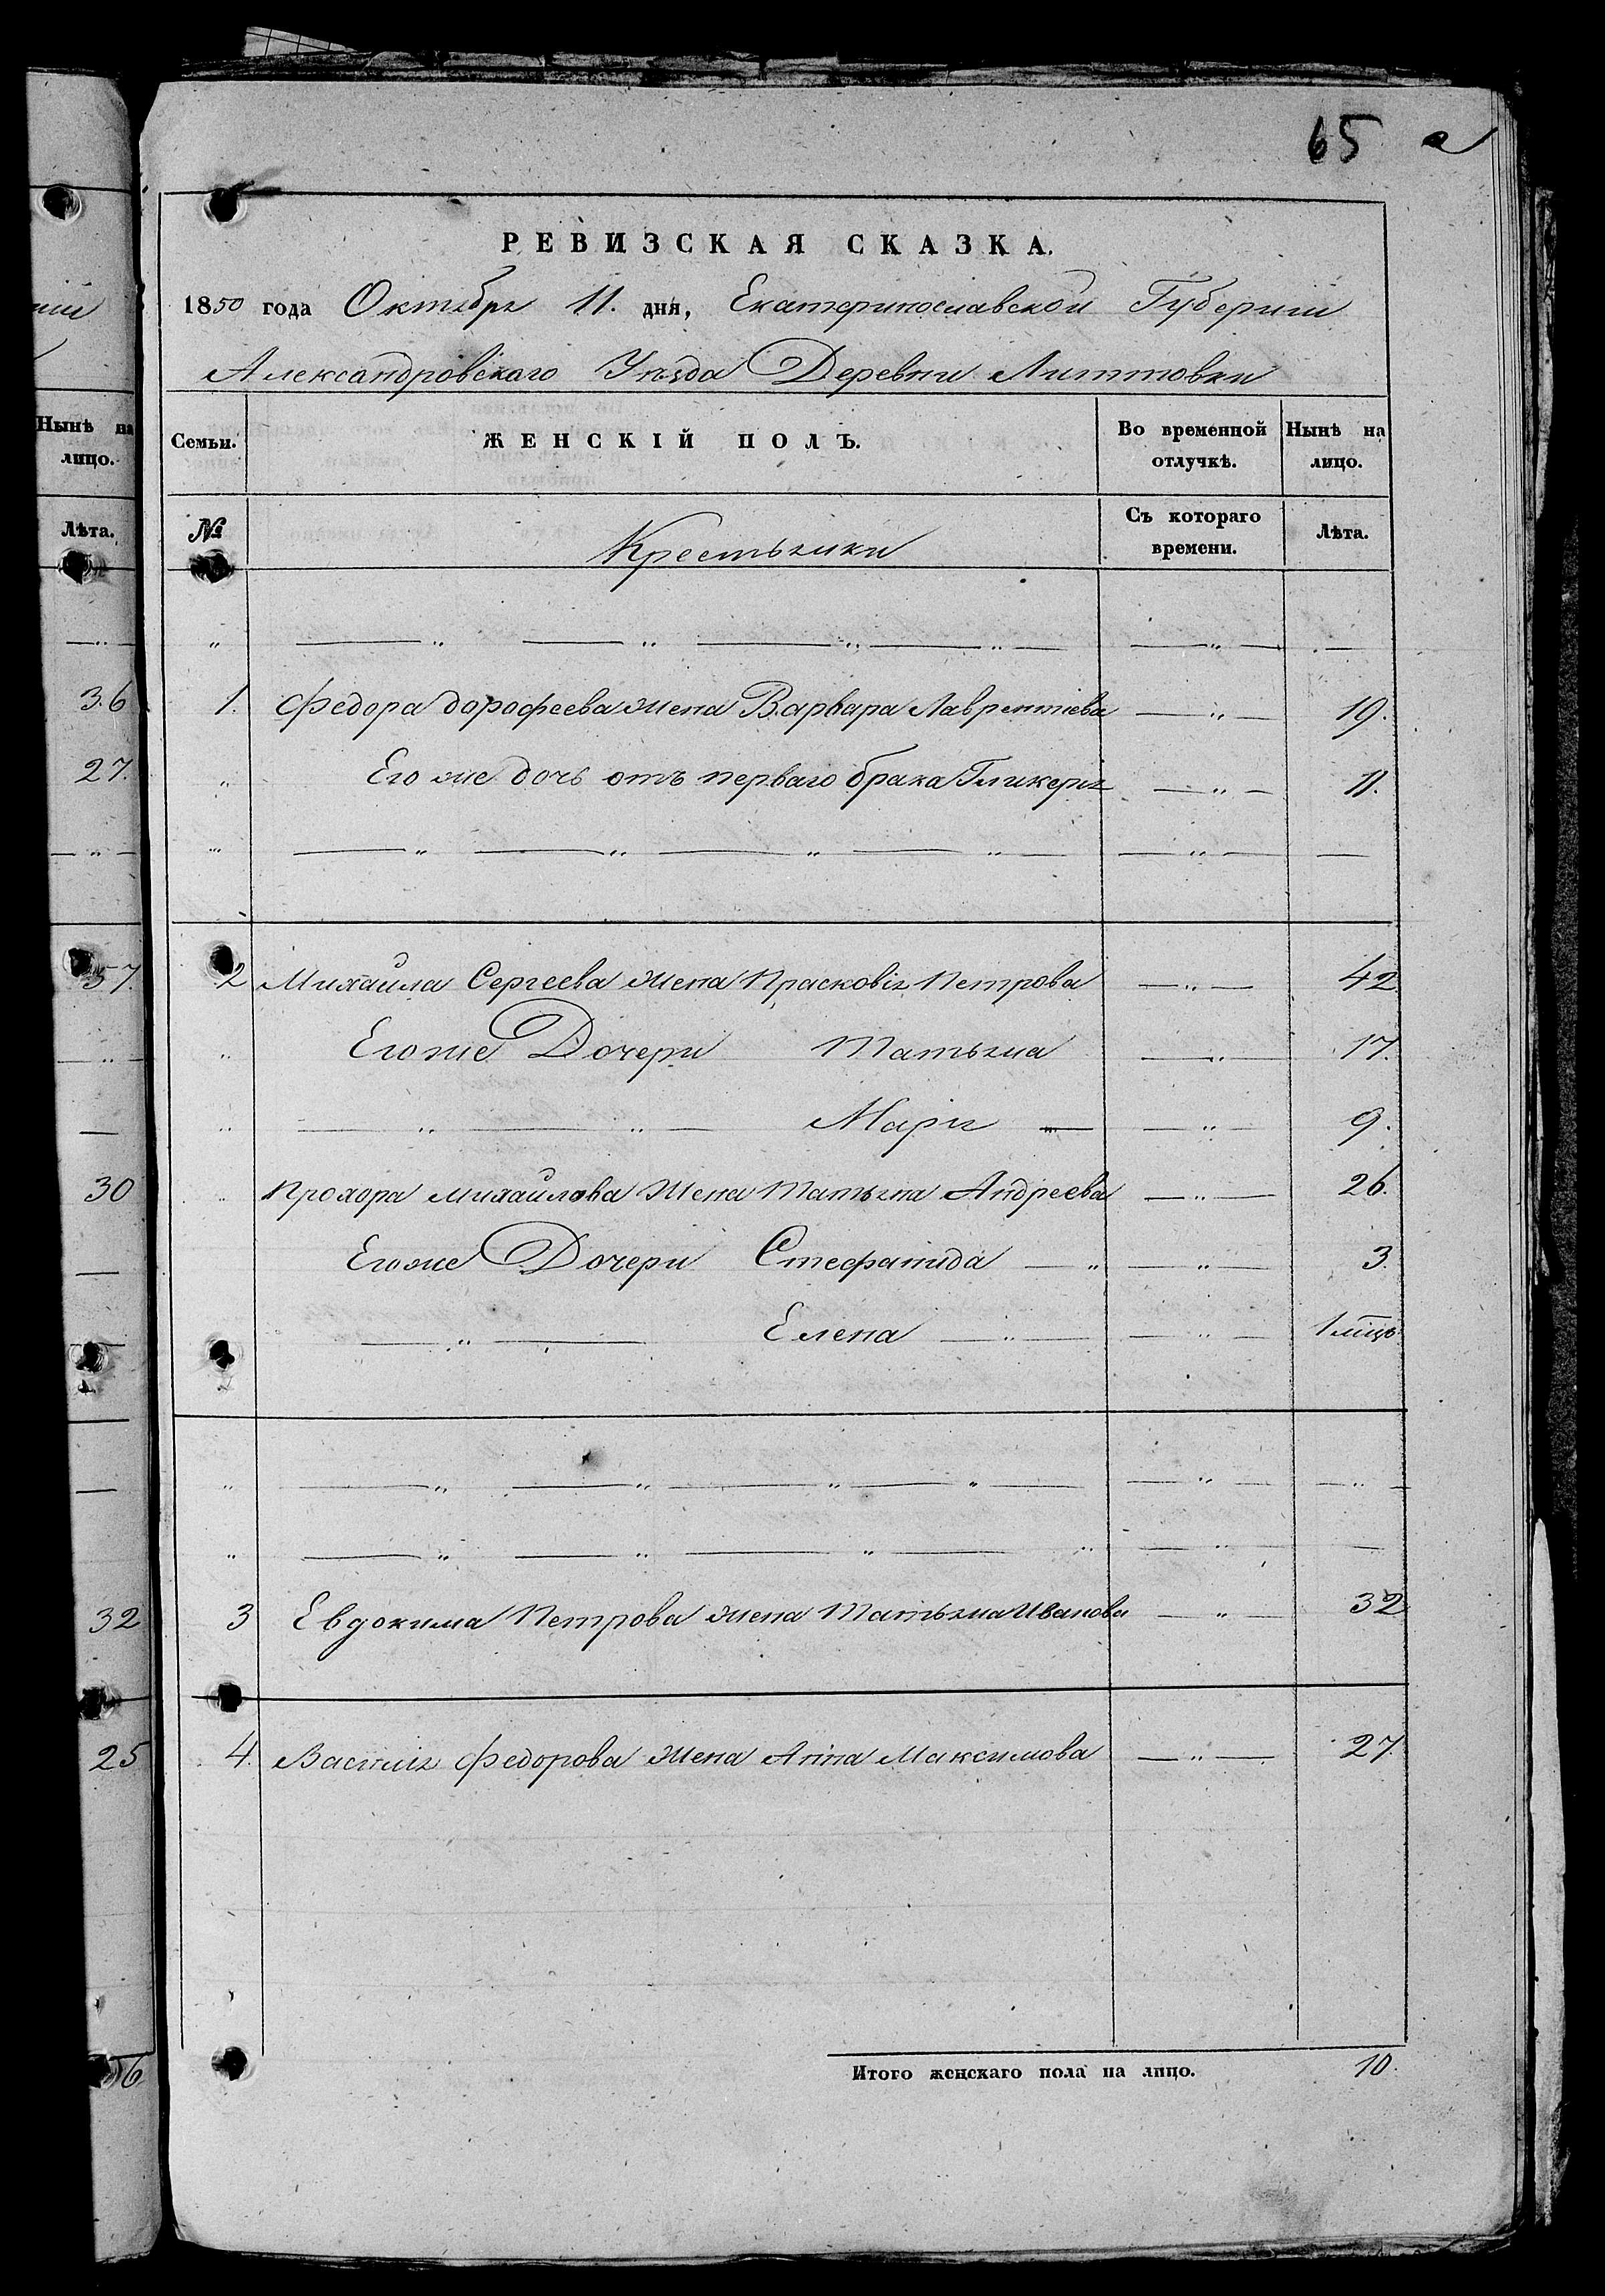 65 а
РЕВИЗСКАЯ СКАЗКА.
1850 года Октября 11. дня, Екатеринославской Губернии
Александровскаго Уѣзда Деревни Литтовки
Нынѣ на лицо.
Семьи. ЖЕНСКІЙ ПОЛЪ. Во временной отлучкѣ. Нынѣ на лицо.
Лѣта.
№ Крестьянки Съ котораго времени. Лѣта.
36 1. Федора Дорофеева жена Варвара Лаврентіева — „ — 19.
27. „ Его же дочь отъ перваго брака Гликерия — „ — 11.
57. 2 Михайла Сергеева жена Прасковія Петрова — „ — 42
„ Его же Дочери Татьяна — „ — 17.
„ — „ — „ — Мария — — „ — 9.
30 „ Прохора Михайлова Жена Татьяна Андреева — „ — 26.
Его же Дочери Стефанида — „ — „ — 3.
— „ — Елена — „ — — „ — 1 мцъ
32 3 Евдокима Петрова жена Татьяна Иванова — „ — 32
25 4. Василия Федорова жена Анна Максимова — „ — 27.
Итого женскаго пола на лицо. 10.